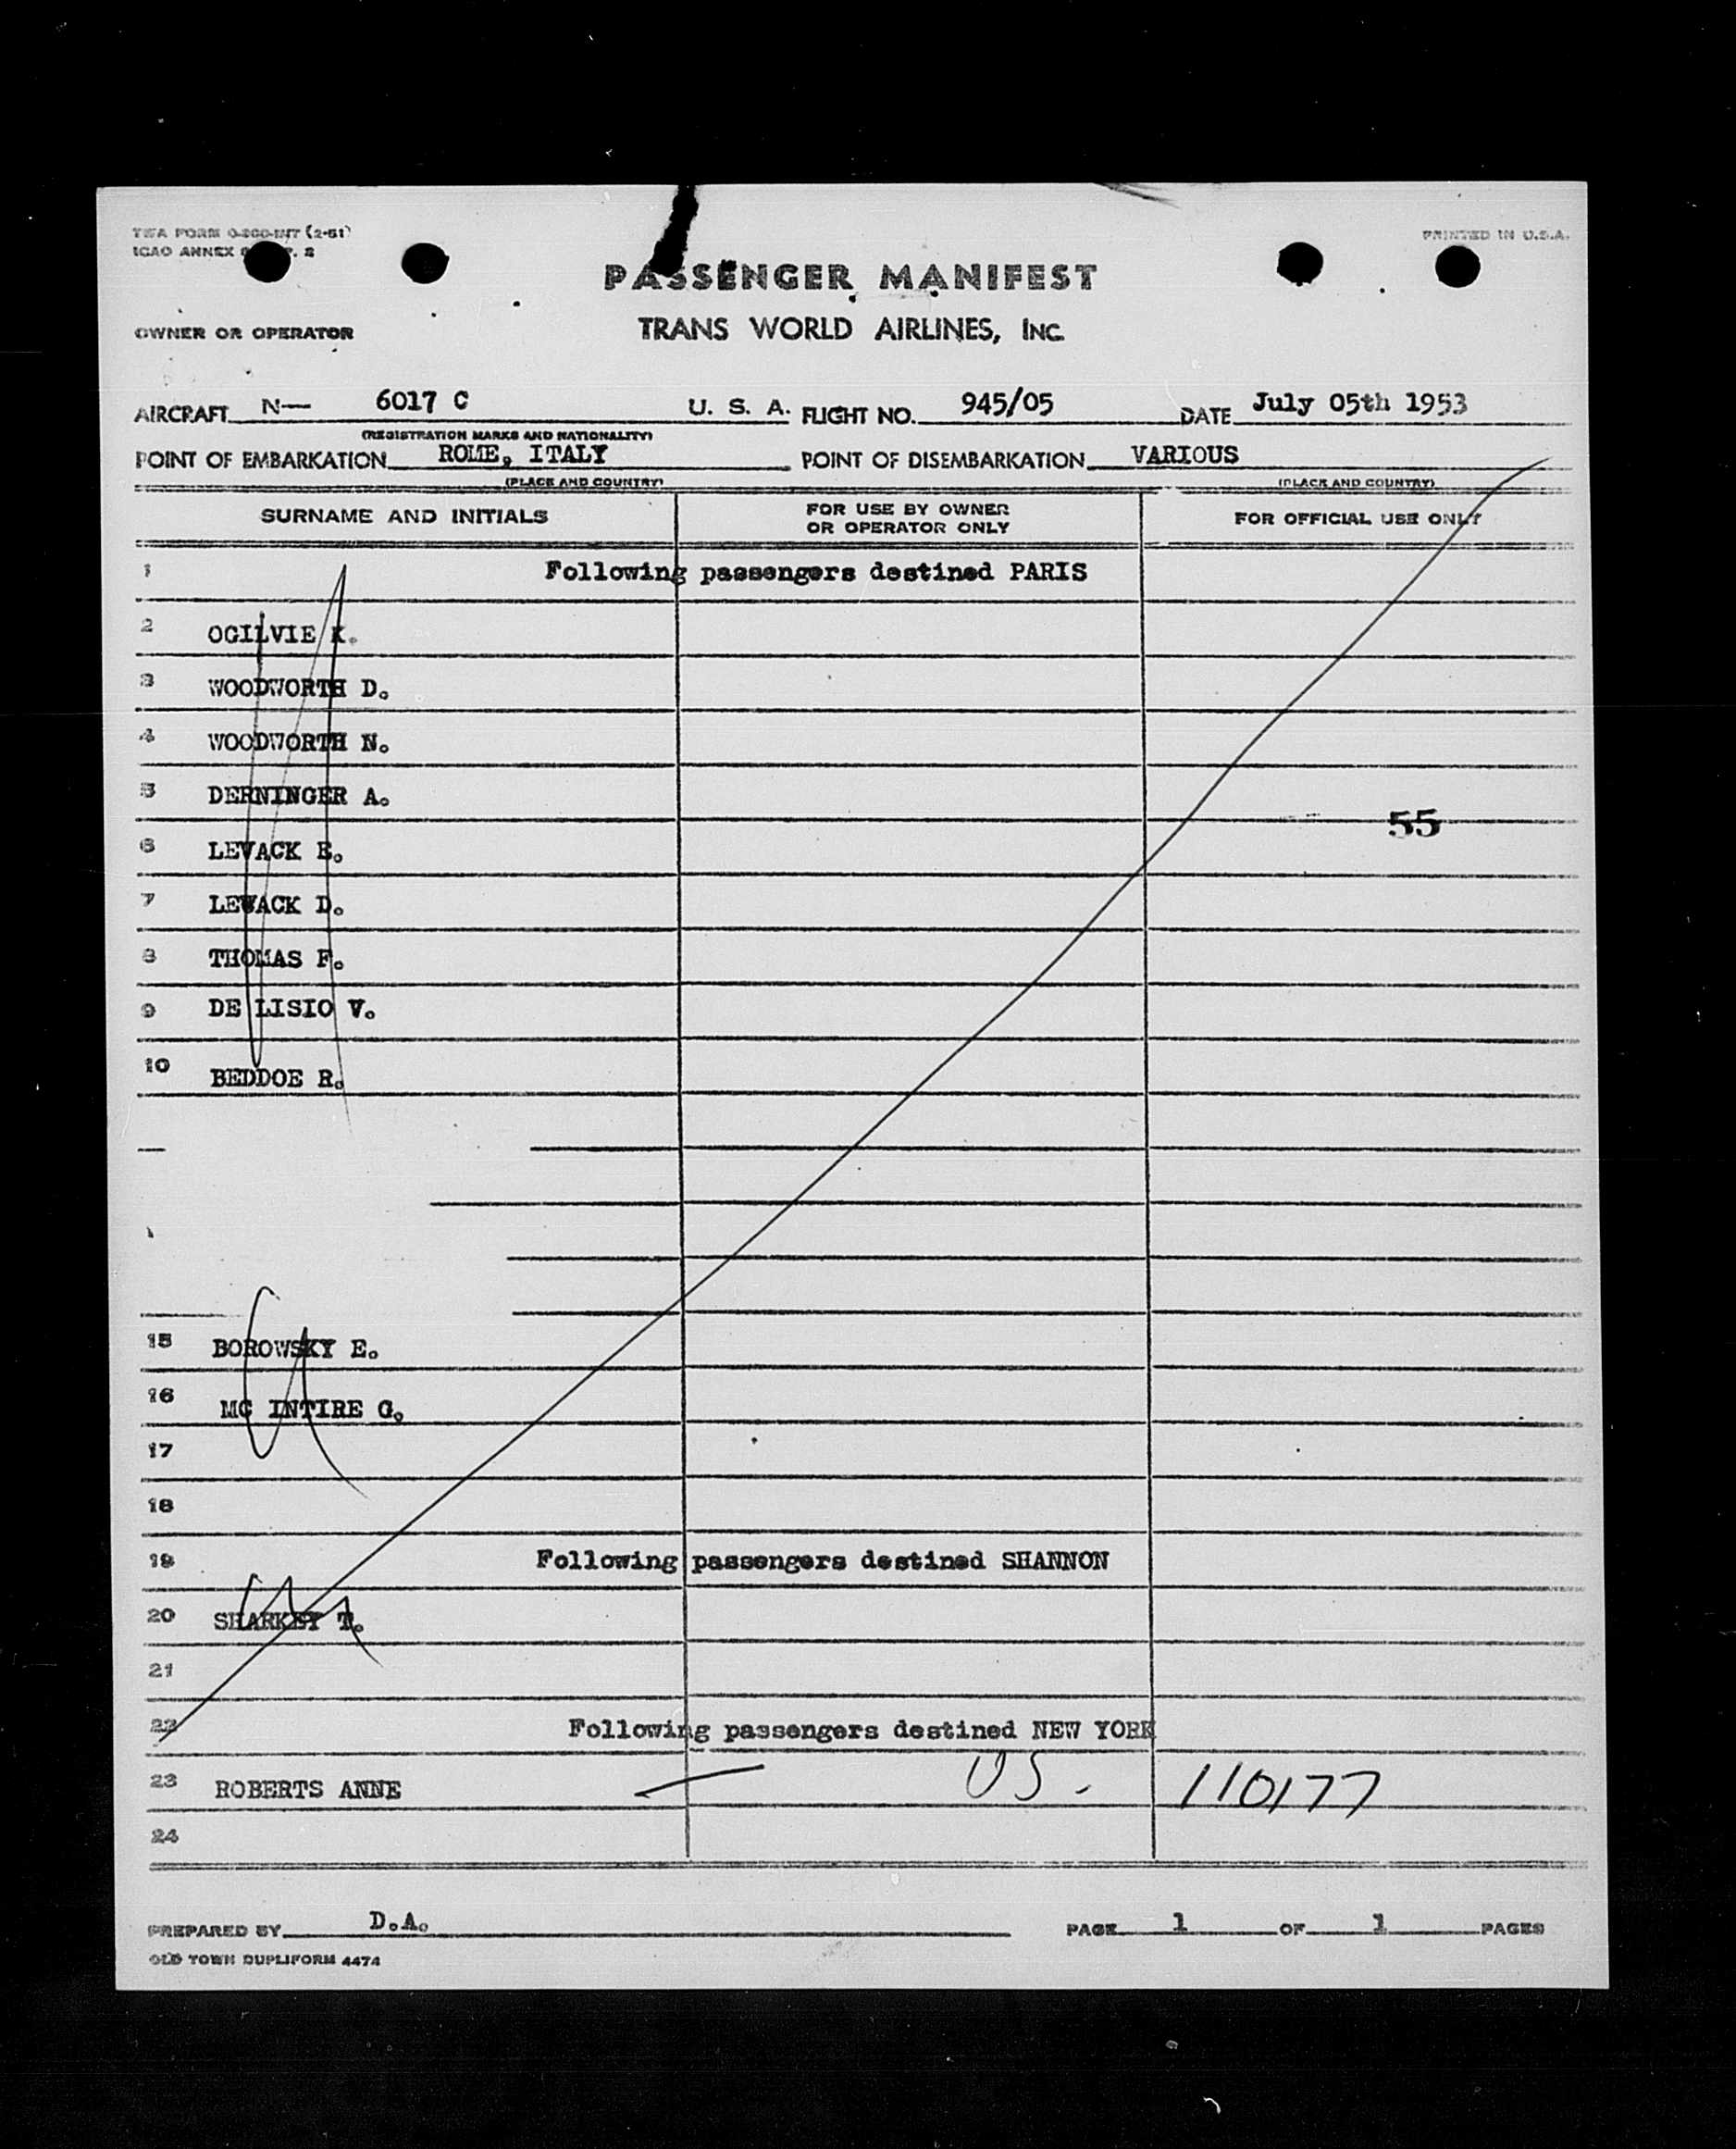 TWA FORM 0-200-INT (2-51)
ICAO ANNEX
PRINTED IN U.S.A.
PASSENGER MANIFEST
OWNER OR OPERATOR
TRANS WORLD AIRLINES, INC.
AIRCRAFT N— 6017 C U. S. A. FLIGHT NO. 945/05 DATE July 05th 1953
(REGISTRATION MARKS AND NATIONALITY)
POINT OF EMBARKATION ROME, ITALY POINT OF DISEMBARKATION VARIOUS
(PLACE AND COUNTRY) (PLACE AND COUNTRY)
SURNAME AND INITIALS FOR USE BY OWNER OR OPERATOR ONLY FOR OFFICIAL USE ONLY
1 Following passengers destined PARIS
2 OGILVIE K.
3 WOODWORTH D.
4 WOODWORTH N.
5 DERNINGER A.
55
6 LEVACK E.
7 LEVACK D.
8 THOMAS F.
9 DE LISIO V.
10 BEDDOE R.
15 BOROWSKY E.
16 MC INTIRE G.
17
18
19 Following passengers destined SHANNON
20 SHARKEY T.
21
22 Following passengers destined NEW YORK
23 ROBERTS ANNE — US. 110177
24
PREPARED BY D.A. PAGE 1 OF 1 PAGES
OLD TOWN DUPLIFORM 4474